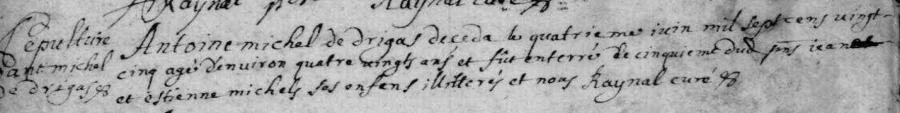 Raynal curé
Sepulture Antoine michel de drigas deceda le quatrieme iuin mil sept cens vingt-
d'ant michel cinq agé d'environ quatre vingts ans et fut enterré le cinquieme dud pns iean
de drigas et estienne michels ses enfens illitterés et nous Raynal curé